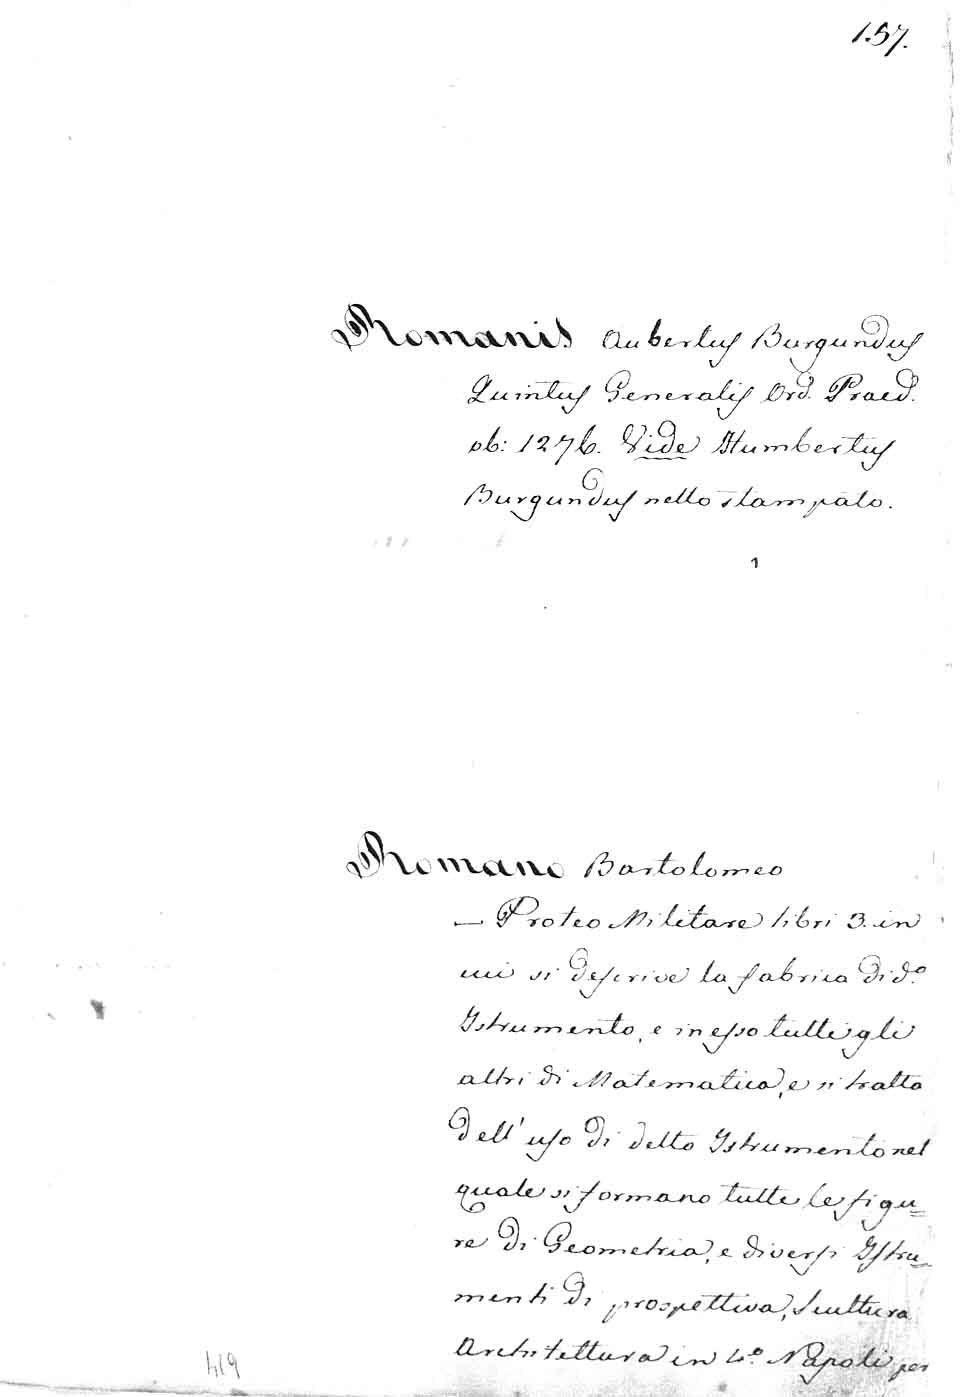 157.
Romanis Aubertus Burgundus
Quintus Generalis Ord. Praed.
ob: 1276. Vide Humbertus
Burgundus nello stampato.
1
Romano Bartolomeo
— Proteo Militare libri 3. in
cui si descrive la fabrica di d.o
Istrumento, e in esso tutti gli
altri di Matematica, e si tratta
dell' uso di detto Istrumento nel
quale si formano tutte le figu=
re di Geometria, e diversi Istru=
menti di prospettiva, Scultura
Architettura in 4.o Napoli per
419